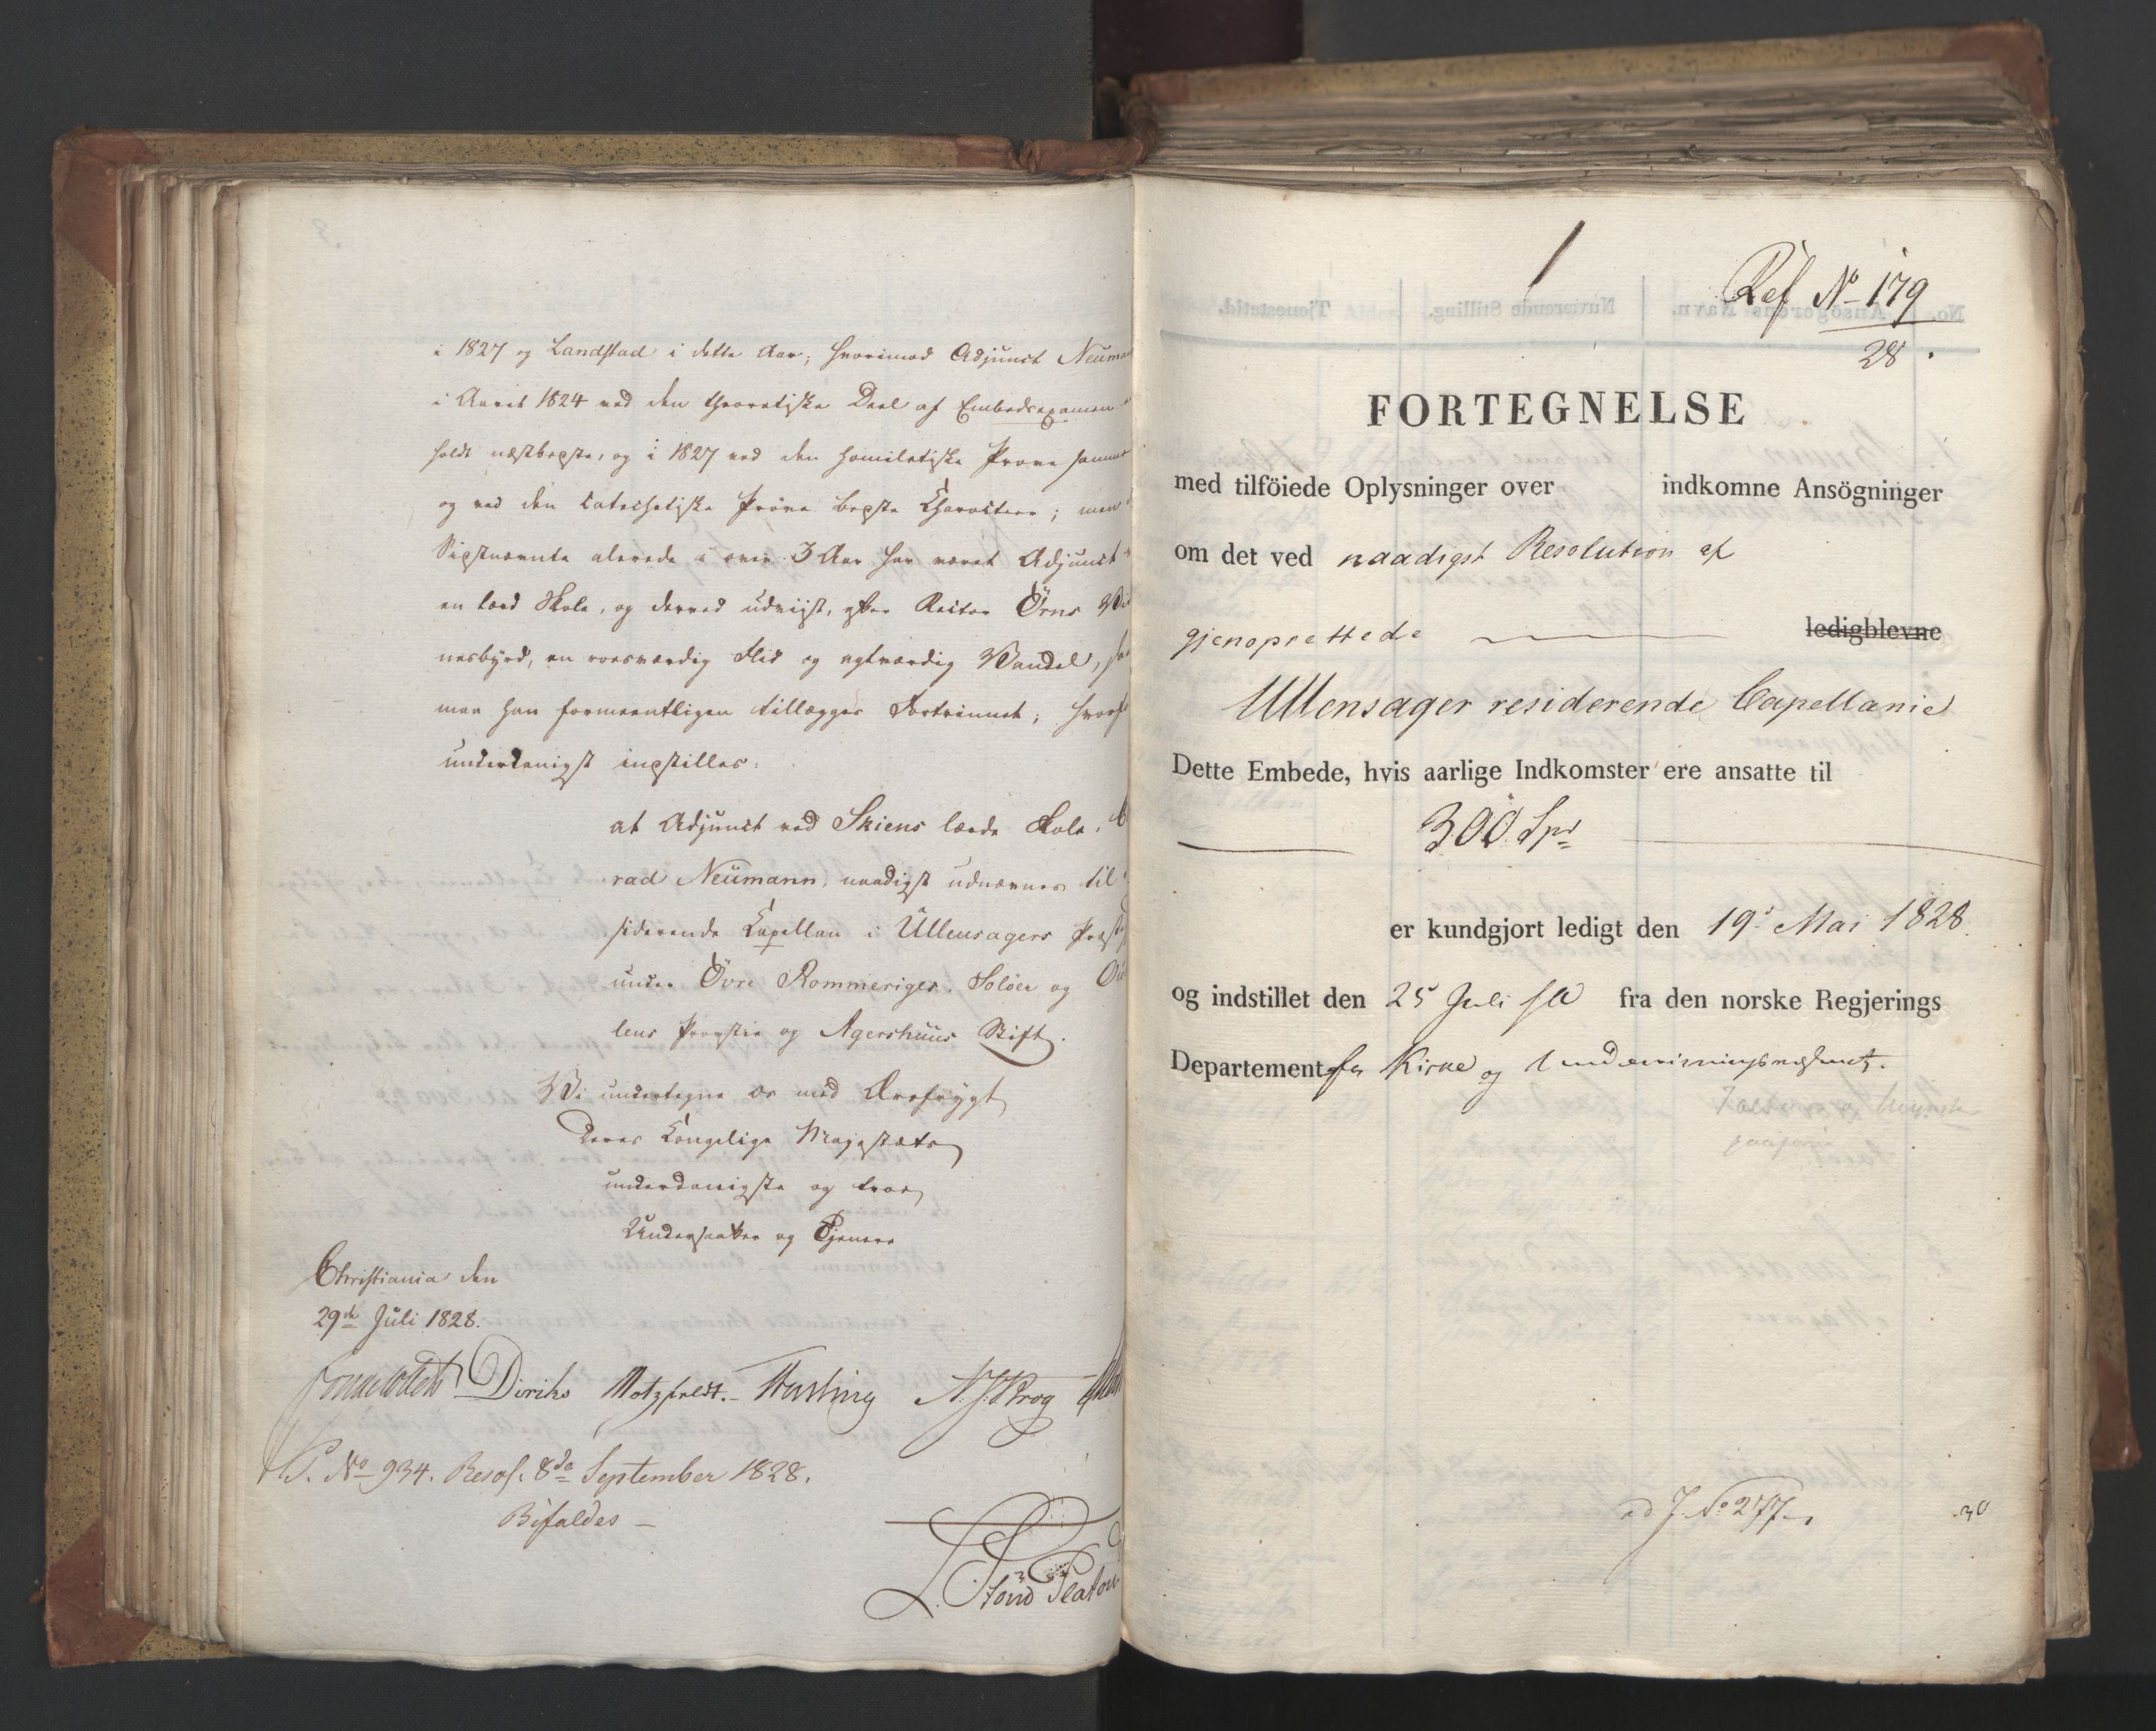 i 1827 og Landstad i dette Aar; hvorimod Adjunct Neuma
i Aaret 1824 ved den theoretiske Deel af Embedsexamen
holdt næstbedste, og i 1827 ved den homiletiske Prøve samme
og ved den catechetiske Prøve bedste Charakteer; men
Sidstnævnte alerede i over 3 Aar har været Adjunct
en lærd Skole, og derved udviist, efter Rector Örns Vid
nesbyrd, en roesværdig Flid og agtværdig Vandel,
man ham formeentligen tillægges Fortrinnet; hvorf
underdanigst indstilles:
at Adjunct ved Skiens lærde Skole,
rad Neumann, naadigst udnævnes til
siderende Capellan i Ullensagers Præst
under Övre Rommeriges, Soløer og
lens Provstie og Agershuus Stift.
Vi undertegne os med Ærefrygt
Deres Kongelige Majestæts
underdanigste og troe
Undersaatter og Tjenere
Christiania den
29de Juli 1828.
Diriks Motzfeldt. N. J. Krog
S. No 934. Resol. 8de September 1828.
Bifaldes —
1
Ref No 179
28.
FORTEGNELSE
med tilföiede Oplysninger over indkomne Ansögninger
om det ved naadigst Resolution af
gjenoprettede ledigblevne
Ullensager residerende Capellanie
Dette Embede, hvis aarlige Indkomster ere ansatte til
300 Spd
er kundgjort ledigt den 19d Mai 1828.
og indstillet den 25 Juli fra den norske Regjerings
Departement for Kirke og Underviisningsvæsenet.
ad J. No 277
30